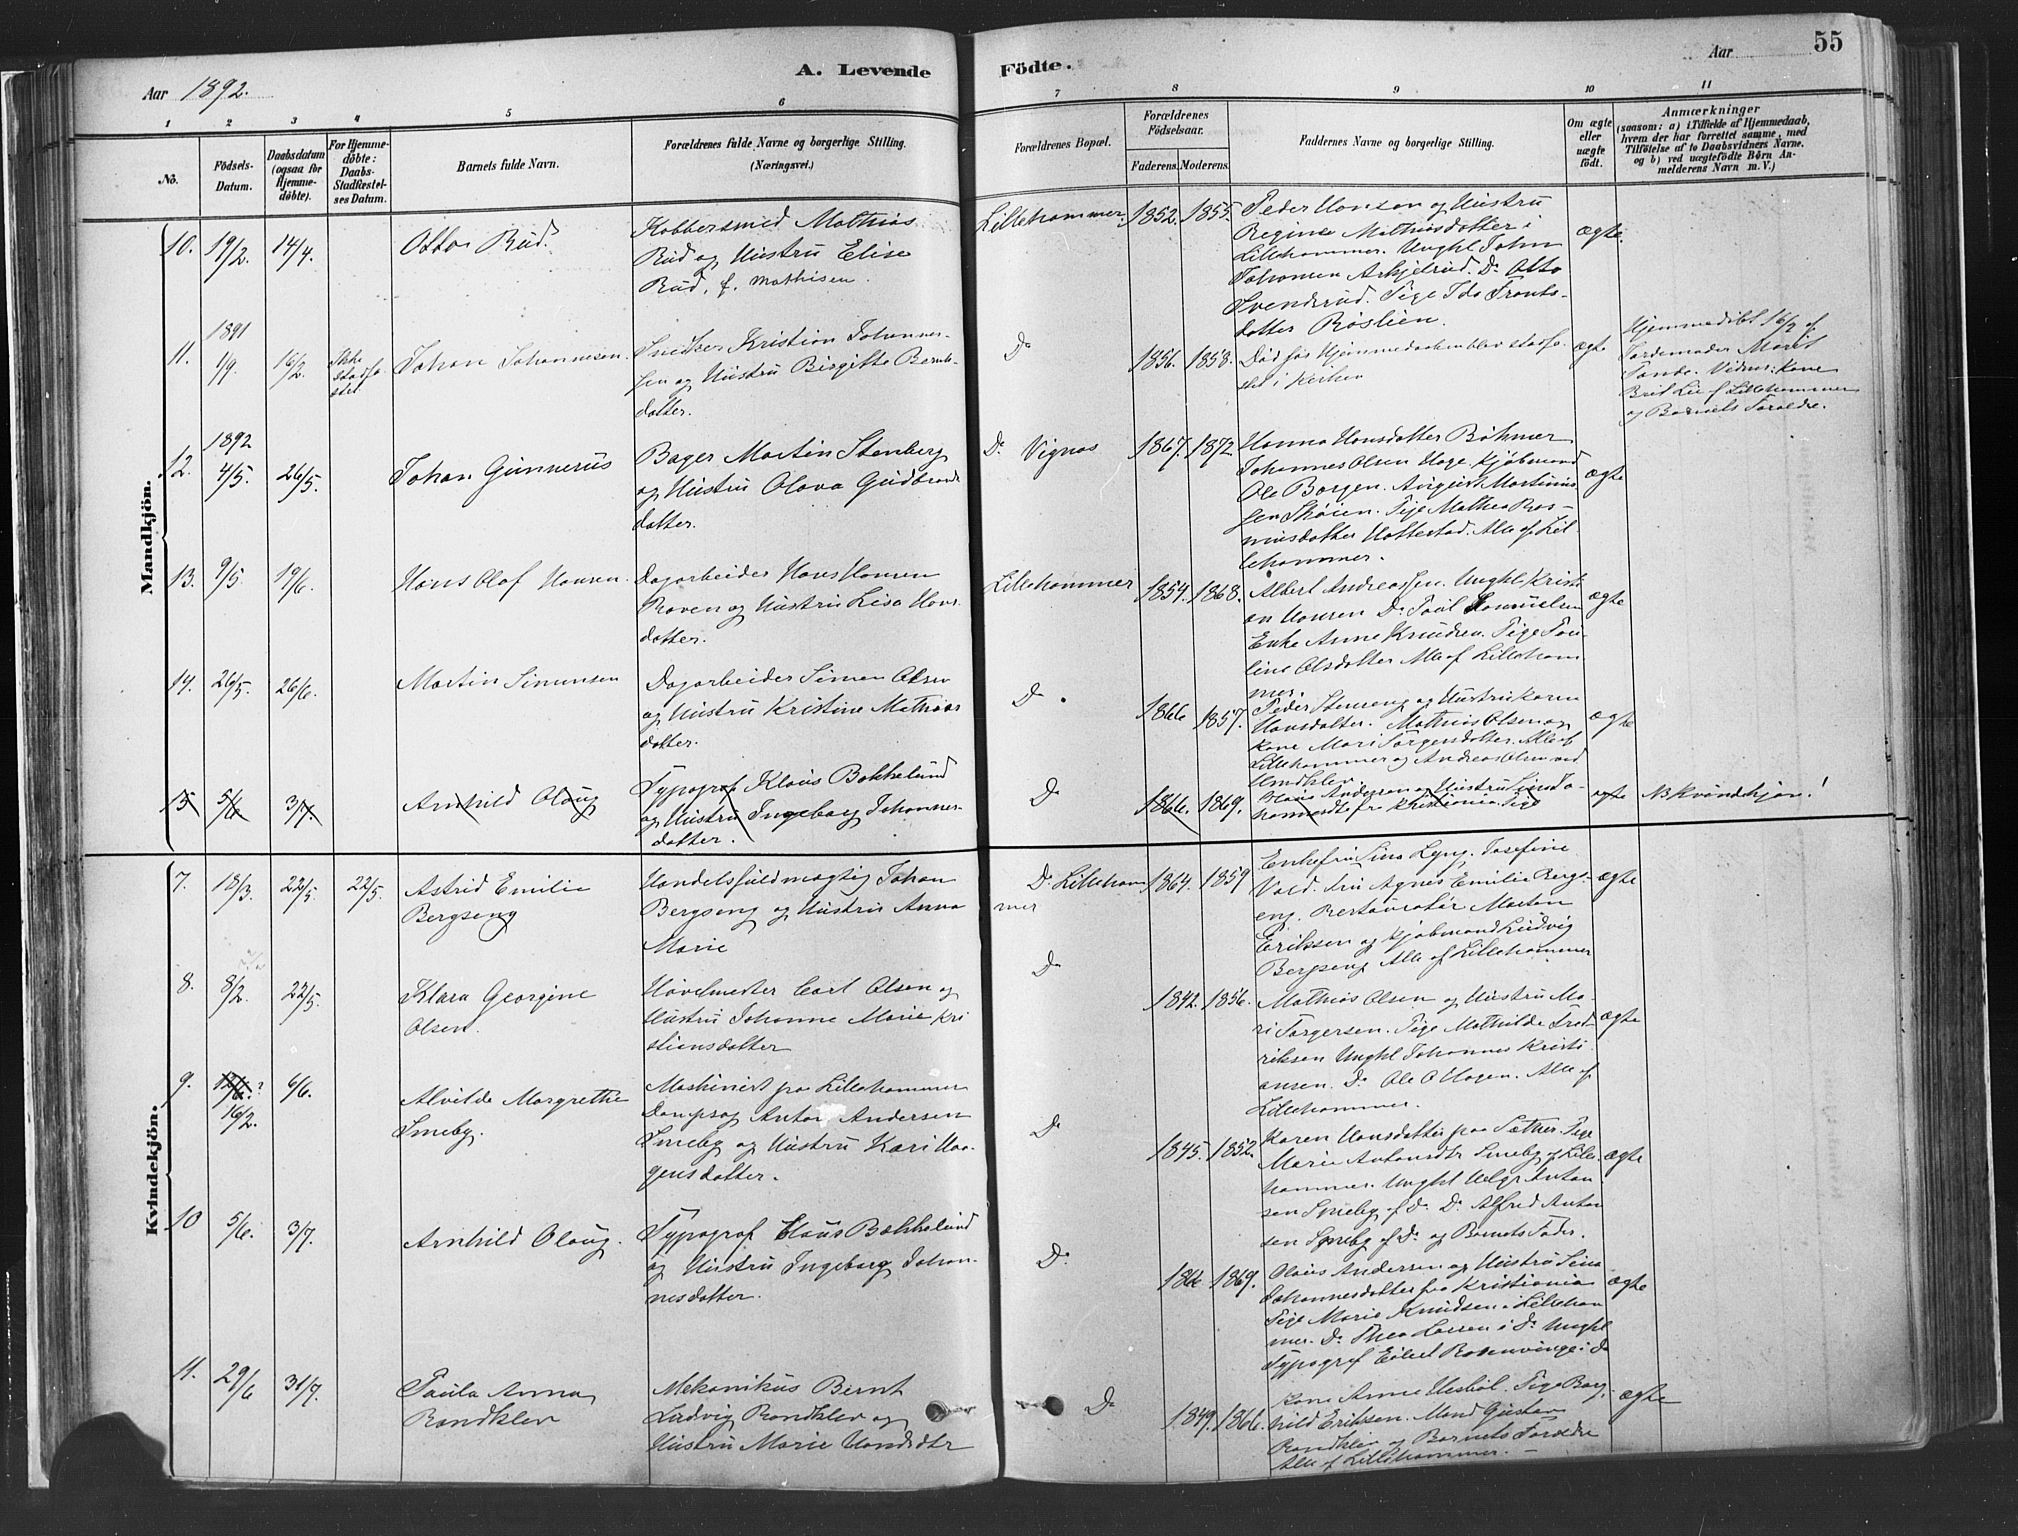 Aar 1892.
A. Levende Födte.
Aar
55
1
2
3
4
5
6
7
8
9
10
11
No.
Födsels-
Datum.
Daabsdatum
(ogsaa for
Hjemme-
döbte).
For Hjemme-
döbte:
Daabs-
Stadfæstel-
ses Datum.
Barnets fulde Navn.
Forældrenes fulde Navne og borgerlige Stilling.
(Næringsvei.)
Forældrenes Bopæl.
Forældrenes
Födselsaar.
Faderens. Moderens.
Faddernes Navne og borgerlige Stilling.
Om ægte
eller
uægte
födt.
Anmærkninger
(saasom: a) i Tilfælde af Hjemmedaab,
hvem der har forrettet samme, med
Tilföielse af to Daabsvidners Navne,
og b) ved uægtefödte Börn An-
melderens Navn m. V.)
Mandkjön.
10. 19/2. 14/4. Ottar Rud.
Kobbersmed Mathias
Rud og Hustru Elise
Rud, f. Mathisen.
Lillehammer. 1852. 1855.
Peder Hansen og Hustru
Regine Mathiasdatter i
Lillehammer. Unghl Johan
Johansen Do Otto
Svendsrud. Pige Ida
datter Røslien.
ægte.
11. 1891
9/9. 16/2. Ikke
stadfæ
stet
Johan Johannesen.
Snedker Kristian Johannes-
sen og Hustru Birgitte Bernts-
datter.
Do 1856. 1858.
Død før Hjemmedaaben blev stadfæ-
stet i Kirken
ægte
Hjemmedøbt 16/9 af
Jordemoder Marit
Tande. Vidner: Kone
Brit Lie af Lillehammer
og Barnets Forældre.
12. 1892
4/5. 26/5. Johan Gunnerus
Bager Martin Stenberg
og Hustru Olava Gudbrands
datter.
Do Vignas 1867. 1872.
Hanna Hansdatter Bøhmer
Johannes Olsen Hage, Kjøbmand
Ole Borgen. August Martinus
sen Skøien. Pige Mathea Ras-
musdatter Hattestad. Alle af Lil
lehammer.
ægte
13. 9/5. 19/6. Hans Olaf Hansen.
Dagarbeider Hans Hansen
Raven og Hustru Lisa Hans
datter.
Lillehammer 1854. 1868.
Albert Andreassen. Unghl Kristi
an Hansen Do Paul Samuelsen
Enke Anne Knudsen. Pige Pau
line Olsdatter Alle af Lilleham
mer.
ægte
14. 26/5. 26/6. Martin Simensen
Dagarbeider Simen Olsen
og Hustru Kristine Mathias
datter.
Do. 1866 1857.
Peder Stenseng og Hustru Karen
Hansdatter. Mathias Olsen og
Kone Mari Torgersdatter. Alle af
Lillehammer og Andreas Olsen ved
ægte
15 5/6 3/7. Arnhild Olaug
Typograf Klaus Bakkelund
og Hustru Ingeborg Johannes-
datter.
Do 1866. 1869.
Olaus Andersen og Hustru Sina Jo-
hannesdtr fra Kristiania. Pige
ægte NB Kvindekjøn!
Kvindekjön.
7. 18/3. 22/5. 22/5. Astrid Emilie
Bergseng
Handelsfuldmægtig Johan
Bergseng og Hustru Anna
Marie
Do Lilleham
mer
1864. 1859
Enkefru Sina Lyng. Josefine
Vold. Fru Agnes Emilie Bergs-
eng. Restauratør Morten
Eriksen og Kjøbmand Ludvig
Bergseng Alle af Lillehammer
ægte
8. 8/2. 22/5. Klara Georgine
Olsen.
Høvelmester Carl Olsen og
Hustru Johanne Marie Kri
stiansdatter
Do 1842. 1856.
Mathias Olsen og Hustru Ma-
ri Torgersen. Pige Mathilde Fred
riksen Unghl Johannes Kristi
ansen. Do Ole O Hagen. Alle af
Lillehammer.
ægte
9. ? 16/2. 6/6. Alvilde Margrethe
Smeby.
Maskinist paa Lillehammer
Dampsag Anton Andersen
Smeby og Hustru Kari Haa-
gensdatter.
Do 1845. 1852.
Karen Hansdatter paa Sæther. Pige
Marie Antonsdtr Smeby af Lille-
hammer. Unghl Helge Anton
sen Smeby af Do Do Alfred Anton
sen Smeby af Do og Barnets Fader.
ægte
10 5/6. 3/7. Arnhild Olaug.
Typograf Claus Bakkelund
og Hustru Ingeborg Johan-
nesdatter.
Do. 1866 1869.
Olaus Andersen og Hustru Sina
Johannesdatter fra Kristiania
Pige Marie Knudsen i Lilleham
mer. Do Thea Larsen i Do Unghl
Typograf Eilert Rosenvinge i Do
ægte
11. 29/6 31/7. Paula Anna
Randklev
Mekanikus Bernt
Ludvig Randklev og
Hustru Marie Hansdtr
Do 1849. 1866.
Kone Anne Pige Borg-
hild Eriksen. Mand Gustav
Randklev og Barnets Forældre
Alle af Lillehammer.
ægte